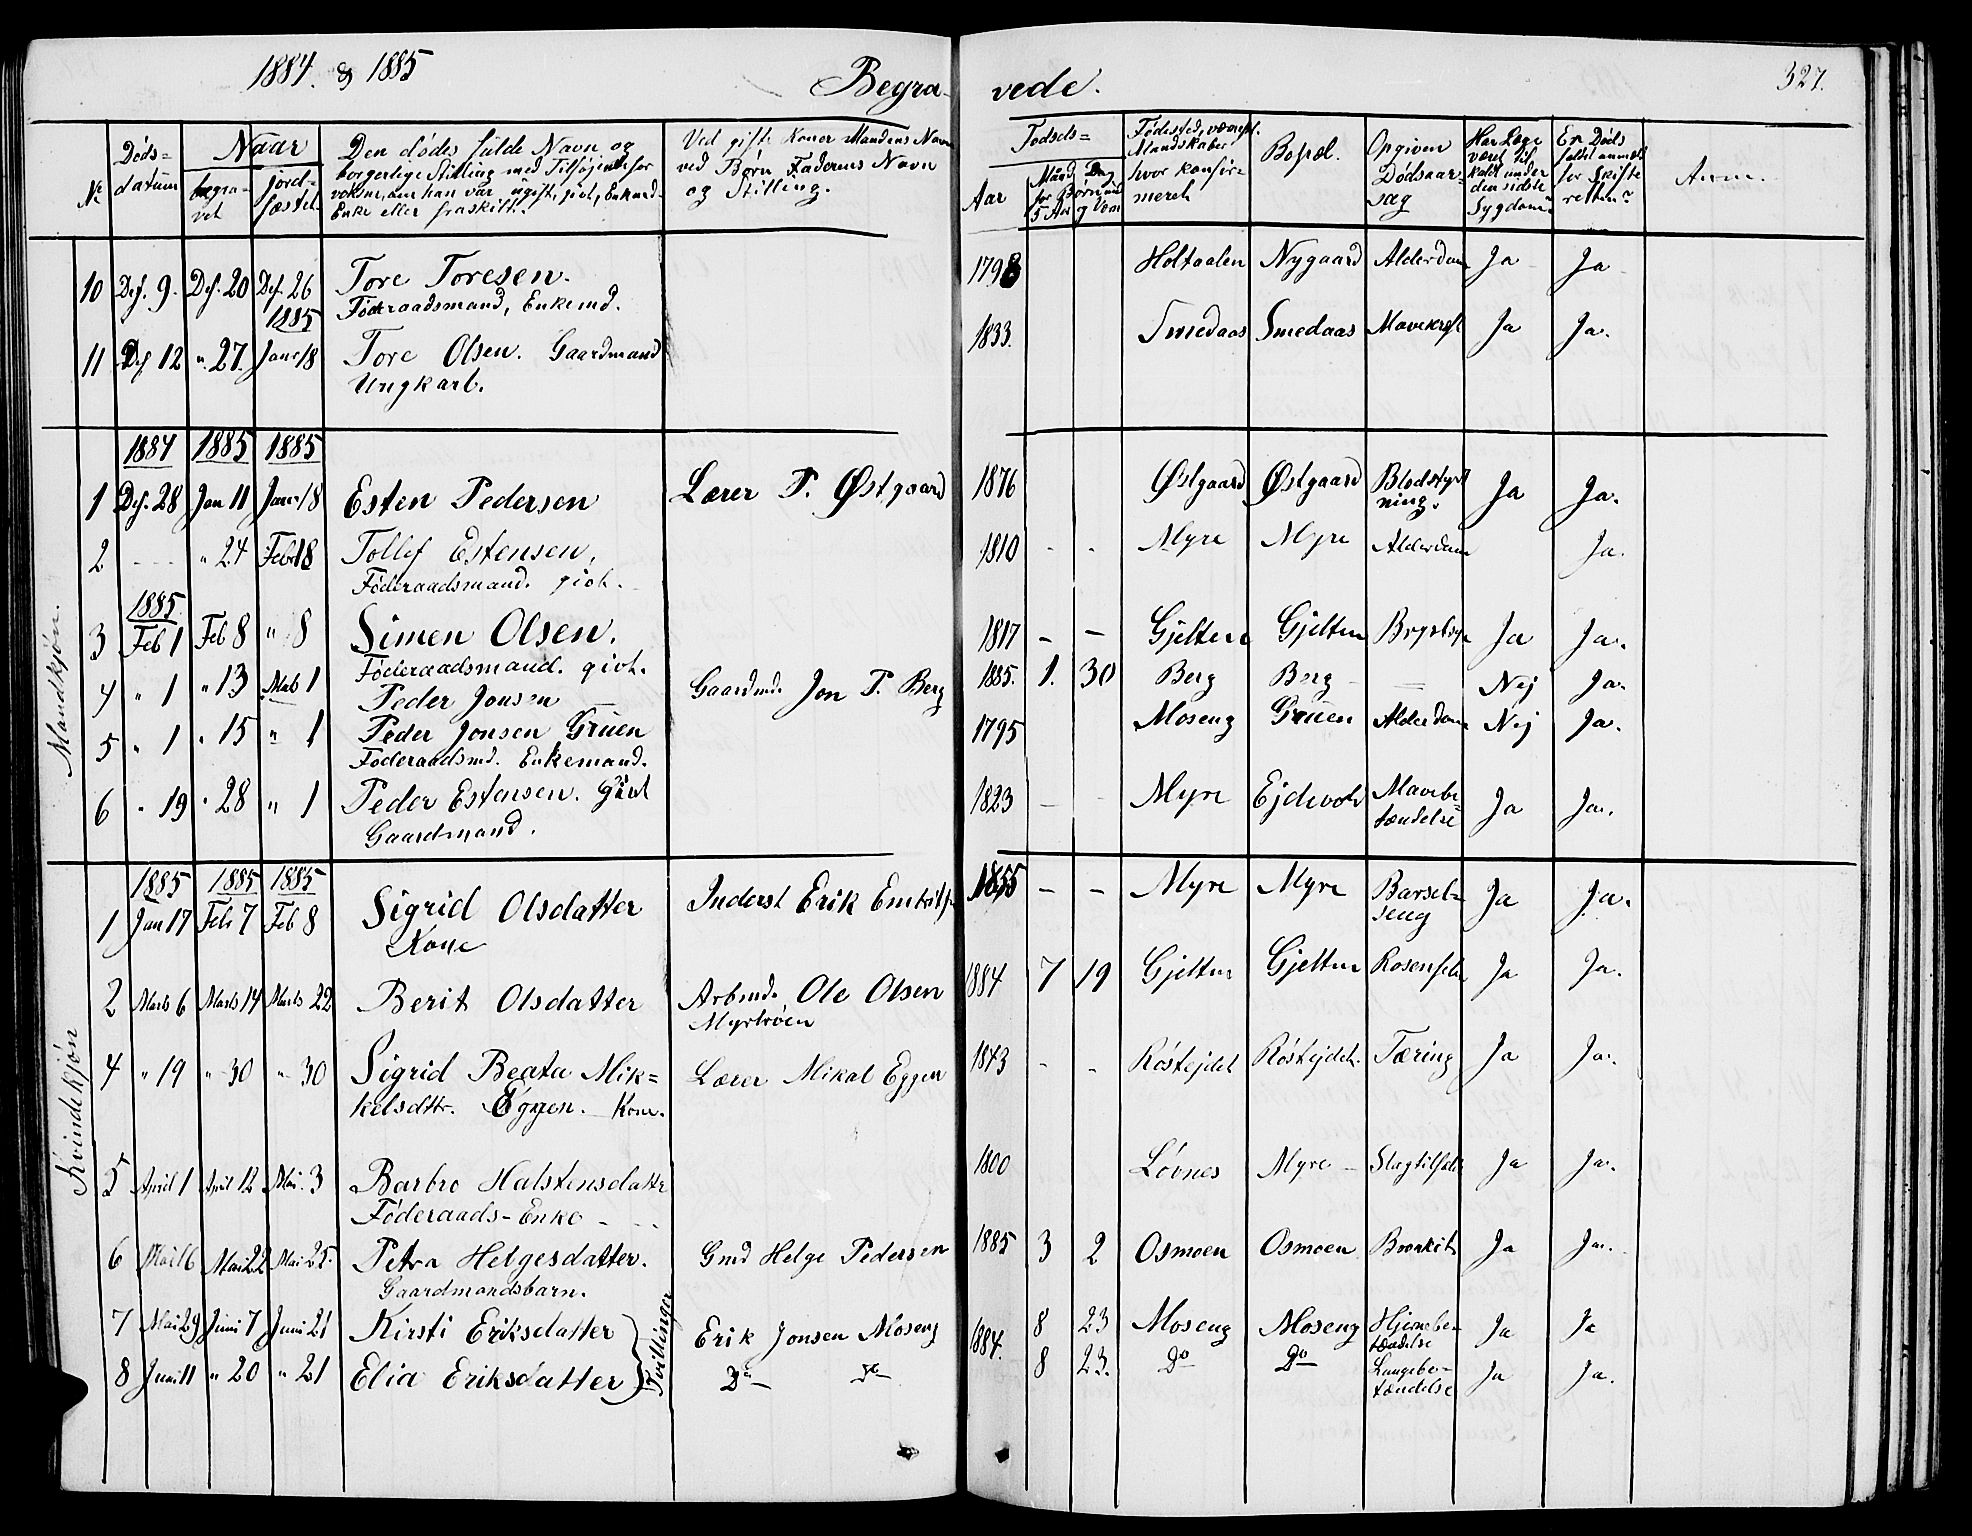 1884. & 1885
Begra-
vede.
327.
Nr
Døds=
datum
Naar
begra-
vet
jord-
fæstet
Den dødes fulde Navn og
borgerlige Stilling med Tilføjende for
voksne, om han var ugift, givt, Enkemd-
Enke eller fraskilt.
Ved gifte Koner Mandens Navn
ved Børn Faderens Navn
og Stilling.
Fødsels=
Aar
Maaned Dag
for Børn
5 Aar
Fødested,
Mandskaber
hvor konfir=
meret
Bopæl.
Opgiven
Dødsaar-
sag
Har Læge
været til
kaldt under
den sidste
Sygdom
Er Døds
faldet anmeldt
for Skifte
retten?
Anm.
10 Des. 9. Des. 20 Des. 26 Tore Toresen. 1798 Holtaalen Nygaard Alderdom Ja Ja
Føderaadsmand, Enkemd.
1885
11 Des 12 " 27. Janr 18 Tore Olsen. Gaardmand 1833. Smedaas Smedaas Mavekræft Ja Ja.
Ungkarl.
Mandkjøn.
1884 1885 1885
1 Des. 28 Jan 11 Janr 18 Esten Pedersen Lærer P. Østgaard 1876 Østgaard Østgaard Blodstyrt
ning. Ja Ja.
2 - - - " 24 Feb 18 Tollef Estensen, 1810 - - Myre Myre Alderdom Ja.
Føderaadsmand. givt.
1885
3 Feb 1 Feb 8 " 8 Simen Olsen. 1817 - - Gjelten Gjelten Brystsyge Ja Ja.
Føderaadsmand. givt.
4 " 1 " 13 Mars 1 Peder Jonsen Gaardmd. Jon P. Berg 1885. 1. 30 Berg Berg — Nej Ja.
5 " 1 " 15 " 1 Peder Jonsen Gruen 1795 Moseng Gruen Alderdom Nej Ja.
Føderaadsmd. Enkemand.
6 " 19 " 28 " 1 Peder Estensen. Givt 1823 - - Myre Ejdevold Mavebe=
tændelse Ja Ja.
Gaardmand.
Kvindekjøn
1885 1885 1885
1 Jan 17 Feb 7 Feb 8 Sigrid Olsdatter Inderst Erik 1855 - - Myre Myre Barsel=
seng Ja Ja.
Kone
2 Marts 6 Marts 14 Marts 22 Berit Olsdatter Arbmd. Ole Olsen 1884 7 19 Gjelten Gjelten Rosenfeber Ja Ja.
Myrtrøen
4 " 19 " 30 " 30 Sigrid Beata Mik= Lærer Mikal Eggen 1843 - - Røstejdet Røstejdet. Tæring Ja Ja.
kelsdttr. Eggen. Kone.
5 April 1 April 12 Mai. 3 Barbro Halstensdatter 1800 Løvnes Myre Slagtilfælde Ja Ja.
Føderaads-Enke
6 Mai 16 Mai 22 Mai 25. Petra Helgesdatter. Gmd Helge Pedersen 1885 3 2 Osmoen Osmoen Bronkit Ja Ja.
Gaardmandsbarn.
7 Mai 29 Juni 7 Juni 21 Kirsti Eriksdatter Erik Jonsen Moseng 1884. 8 23 Moseng Moseng Hjernebe-
tændelse Ja Ja
Tvillinger
8 Juni 11 " 20 " 21 Elia Eriksdatter Do Do 8 23. Do Do Lungebe-
tændelse Ja Ja.